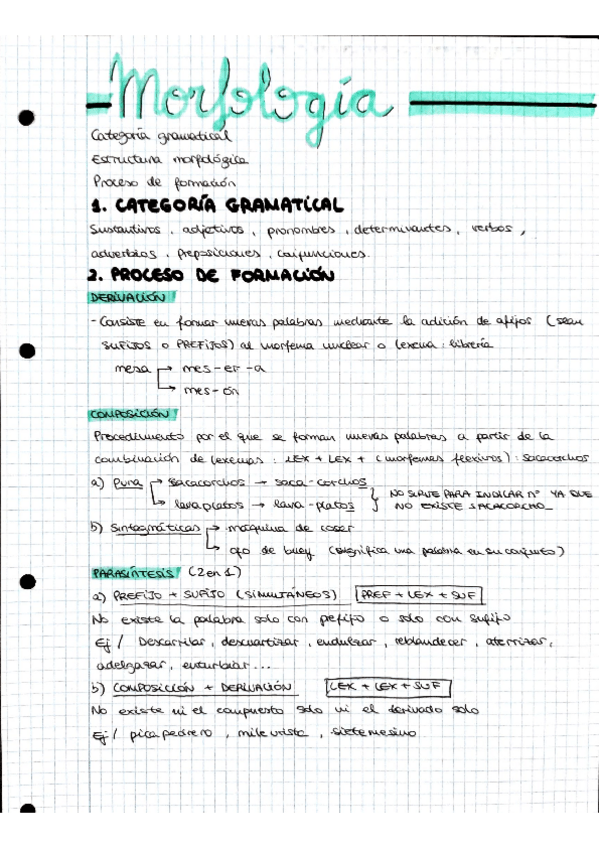 Morfología
Categoría gramatical
Estructura morfológica
Proceso de formación
1. CATEGORÍA GRAMATICAL
Sustantivos, adjetivos, pronombres, determinantes, verbos,
adverbios, preposiciones, conjunciones.
2. PROCESO DE FORMACIÓN
DERIVACIÓN
- Consiste en formar nuevas palabras mediante la adición de afijos (sean
SUFIJOS o PREFIJOS) al morfema nuclear o lexema: librería
mesa → mes-er-a
→ mes-ón
COMPOSICIÓN
Procedimiento por el que se forman nuevas palabras a partir de la
combinación de lexemas: LEX + LEX + (morfemas flexivos): sacacorchos
a) Pura → sacacorchos → saca-corchos
→ lavaplatos → lava-platos } NO SIRVE PARA INDICAR nº YA QUE
NO EXISTE SACACORCHO_
b) Sintagmáticas → máquina de coser
→ ojo de buey (significa una palabra en su conjunto)
PARASÍNTESIS (2 en 1)
a) PREFIJO + SUFIJO (SIMULTÁNEOS) PREF + LEX + SUF
No existe la palabra solo con prefijo o solo con sufijo
Ej/ Descarrilar, descuartizar, endulzar, reblandecer, aterrizar,
adelgazar, enturbiar...
b) COMPOSICIÓN + DERIVACIÓN LEX + LEX + SUF
No existe ni el compuesto solo ni el derivado solo
Ej/ picapedrero, mileurista, sietemesino